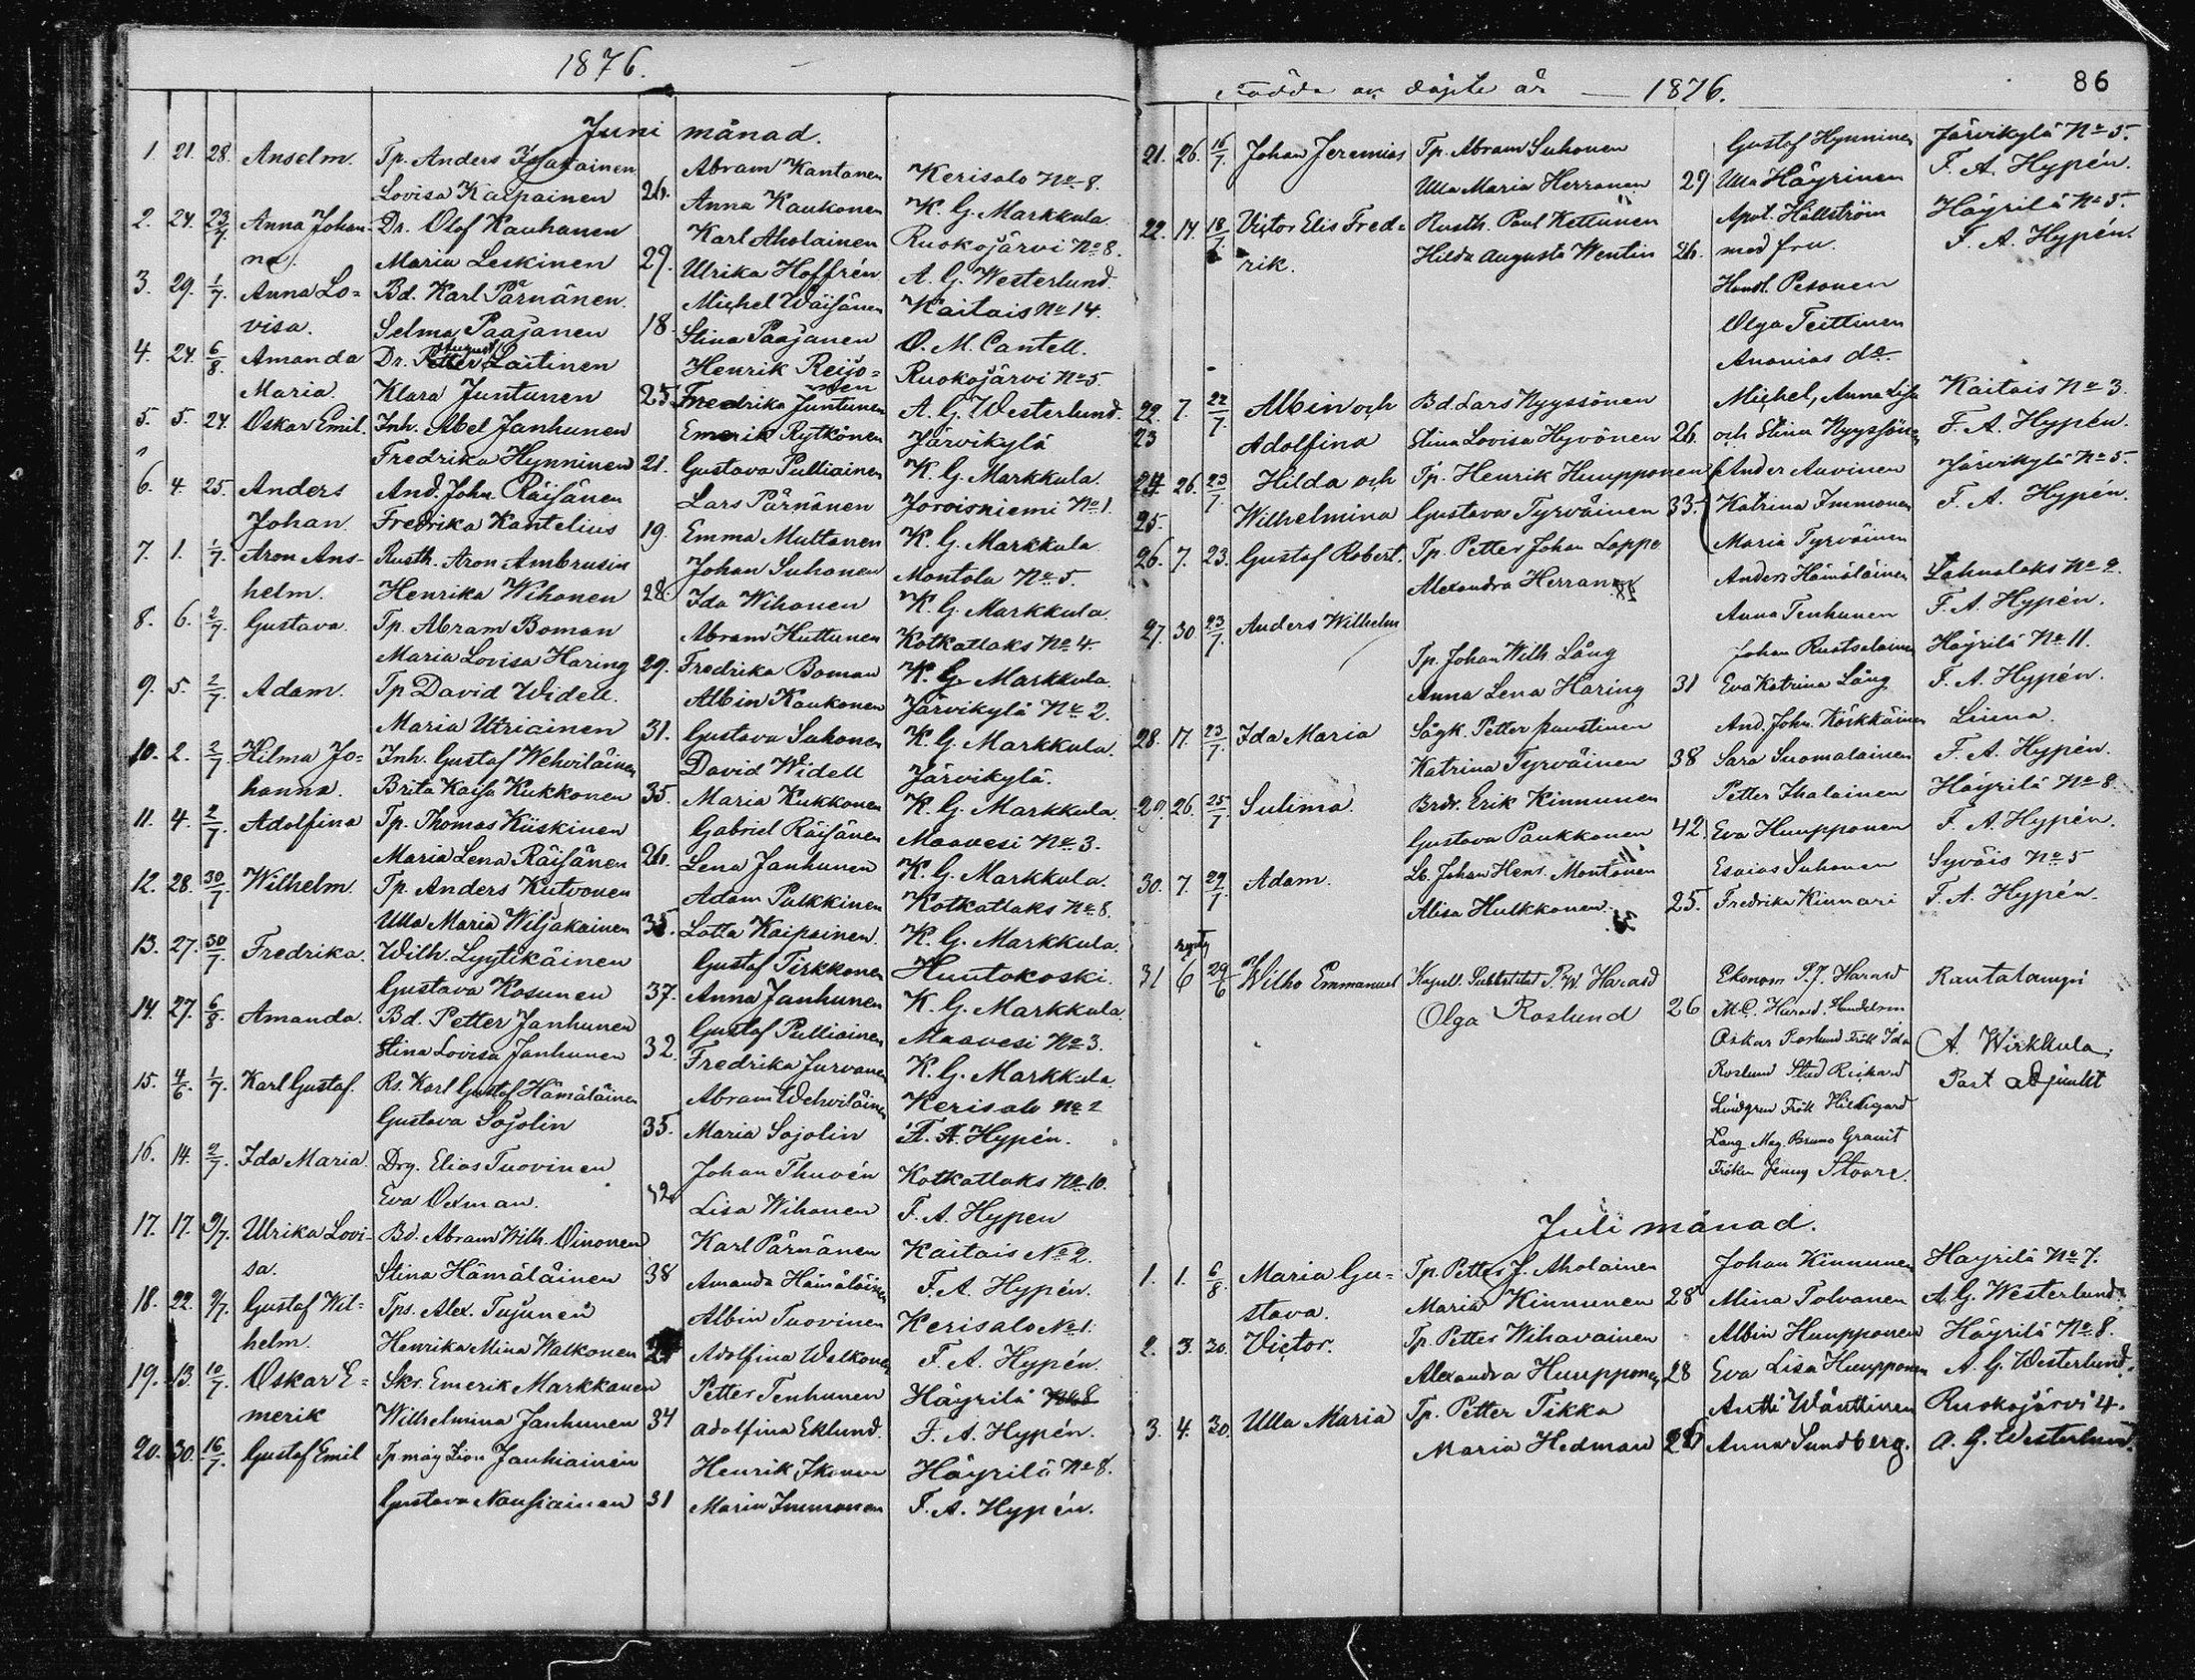 1876.
Juni månad.
1. 21. 28. Anselm. Tp. Anders Abram Kantanen Kerisalo No 8.
Lovisa Kaipainen 26. Anna Kaukonen K. G. Markkula.
2. 24. 23/7. Anna Johan- Dr. Olof Kauhanen Karl Aholainen Ruokojärvi No 8.
na. Maria Leskinen 29. Ulrika Hoffrén A. G. Westerlund.
3. 29. 1/7. Anna Lo- Bd. Karl Pärnänen. Michel Wäisänen Kaitais No 14.
visa. Selma Paajanen 18. Stina Paajanen O. M. Cantell.
4. 24. 6/8. Amanda Dr. Petter August Laitinen Henrik Reijo- Ruokojärvi No 5.
Maria. Klara Juntunen 25. nen Fredrika Juntunen A. G. Westerlund.
5. 5. 24. Oskar Emil. Inh. Abel Janhunen Emerik Rytkönen Järvikylä
Fredrika Hynninen 21. Gustava Pulliainen K. G. Markkula.
6. 4. 25. Anders And. Joh. Räisänen Lars Pärnänen Joroisniemi No 1.
Johan. Fredrika Kantelius 19. Emma Multanen K. G. Markkula.
7. 1. 1/7. Aron Ans- Rusth. Aron Ambrusin Johan Suhonen Montola No 5.
helm. Henrika Wihonen 28. Ida Wihonen K. G. Markkula.
8. 6. 2/7. Gustava. Tp. Abram Boman Abram Huttunen Kotkatlaks No 4.
Maria Lovisa Haring 29. Fredrika Boman K. G. Markkula.
9. 5. 2/7. Adam. Tp David Widell. Albin Kaukonen Järvikylä No 2.
Maria Utriainen 31. Gustava Suhonen K. G. Markkula.
10. 2. 2/7 Hilma Jo- Inh. Gustaf Wehviläinen David Widell Järvikylä.
hanna. Brita Kaisa Kukkonen 35. Maria Kukkonen K. G. Markkula.
11. 4. 2/7. Adolfina Tp. Thomas Kiiskinen Gabriel Räisänen Maavesi No 3.
Maria Lena Räisänen 26. Lena Janhunen K. G. Markkula.
12. 28. 30/7 Wilhelm. Tp. Anders Kutvonen Adam Pulkkinen Kotkatlaks No 8.
Ulla Maria Wiljakainen 35. Lotta Kaipainen. K. G. Markkula.
13. 27. 30/7. Fredrika. Wilh. Lyytikäinen Gustaf Tirkkonen Huutokoski.
Gustava Kosunen 37. Anna Janhunen K. G. Markkula.
14. 27. 6/8. Amanda. Bd. Petter Janhunen Gustaf Pulliainen Maavesi No 3.
Stina Lovisa Janhunen 32. Fredrika Jurvanen K. G. Markkula.
15. 4/6. 1/7. Karl Gustaf. Rs. Karl Gustaf Hämäläinen Abram Wehviläinen Kerisalo No 2
Gustava Sojolin 35. Maria Sojolin F. A. Hypén.
16. 14. 2/7. Ida Maria. Drg. Elias Tuovinen Johan Thuvén Kotkatlaks No 10.
Eva Oxman. Lisa Wihonen F. A. Hypen
17. 17. 9/7. Ulrika Lovi- Bd. Abram Wilh. Oinonen Karl Pärnänen Kaitais No 2.
sa. Stina Hämäläinen 38 Amanda Hämäläinen F. A. Hypén.
18. 22. 9/7. Gustaf Wil- Tps. Alex. Tujunen Albin Tuovinen Kerisalo No 1.
helm. Henrika Mina Walkonen Adolfina Walkonen F. A. Hypén.
19. 13. 10/7. Oskar E- Skr. Emerik Markkanen Petter Tenhunen Häyrilä No 8
merik Wilhelmina Janhunen 34 Adolfina Eklund. F. A. Hypén.
20. 30. 16/7. Gustaf Emil Tp måg Janhiainen Henrik Ikonen Häyrilä No 8.
Gustava Nousiainen 31 Maria Immonen F. A. Hypén.
Födde och döpte år 1876. 86
21. 26. 16/7. Johan Jeremias Tp. Abram Suhonen Gustaf Hynninen Järvikylä No 5.
Ulla Maria Herranen 29 Ulla Häyrinen F. A. Hypén.
22. 14. 18/7. Victor Elis Fred- Rusth. Paul Kettunen Apot. Hällström Häyrilä No 5.
rik. Hilda Augusta Wentin 26. med fru. F. A. Hypén.
Handl. Pesonen
Olga Teittinen
Ananias do.
22. 7. 22/7. Albin och Bd. Lars Nyyssönen Michel, Anna Lisa Kaitais No 3.
23 Adolfina Stina Lovisa Hyvönen 26. och Stina Nyyssönen F. A. Hypén.
24. 26. 23/7. Hilda och Tp. Henrik Huupponen Ander Auvinen Järvikylä No 5.
25. Wilhelmina Gustava Tyrväinen 33. Katrina Immonen F. A. Hypén.
Maria Tyrväinen
26. 7. 23. Gustaf Robert. Tp. Petter Johan Loppo Anders Hämäläinen Lahnalaks No 2.
Alexandra Herranen Anna Tenhunen F. A. Hypén.
27. 30 23/7. Anders Wilhelm Tp. Johan Wilh. Lång Johan Ruotsalainen Häyrilä No 11.
Anna Lena Häring 31 Eva Katrina Lång F. A. Hypén.
28. 17. 23/7. Ida Maria Sågk. Petter Paustinen And. Joh. Kärkkäinen Liuna.
Katrina Tyrväinen 38 Sara Suomalainen F. A. Hypén.
29. 26. 25/7 Sulima. Brdr. Erik Kinnunen Petter Ihalainen Häyrilä No 8.
Gustava Paukkonen 42. Eva Huupponen F. A. Hypén.
30. 7. 29/7 Adam. Ls. Johan Henr. Montonen Esaias Suhonen Syväis No 5
Alisa Hulkkonen. 25. Fredrika Kinnari F. A. Hypén.
31 6 29/6 Wilho Emmanuel Kapell. Substitut P. W. Harald Ekonom P. J. Harald Rantalampi
Olga Roslund 26 M. C. Harald. Handelsm
Oskar Roslund Frök Ida A. Wirkkula.
Roslund Stud Rickard Past adjunkt
Lindgren Frök Hildegard
Lang Mag. Bruno Granit
Fröken Jenny Stoore.
Juli månad.
1. 1. 6/8 Maria Gu- Tp. Petter J. Aholainen Johan Kinnunen Häyrilä No 7.
stava. Maria Kinnunen 28 Mina Tolvanen A. G. Westerlund.
2. 3. 30. Victor. Tp. Petter Wihavainen Albin Huupponen Häyrilä No 8.
Alexandra Huupponen 28 Eva Lisa Huupponen A. G. Westerlund.
3. 4. 30. Ulla Maria Tp. Petter Tikka Antti Wänttinen Ruokojärvi 4.
Maria Hedman 26 Anna Sundberg. A. G. Westerlund.